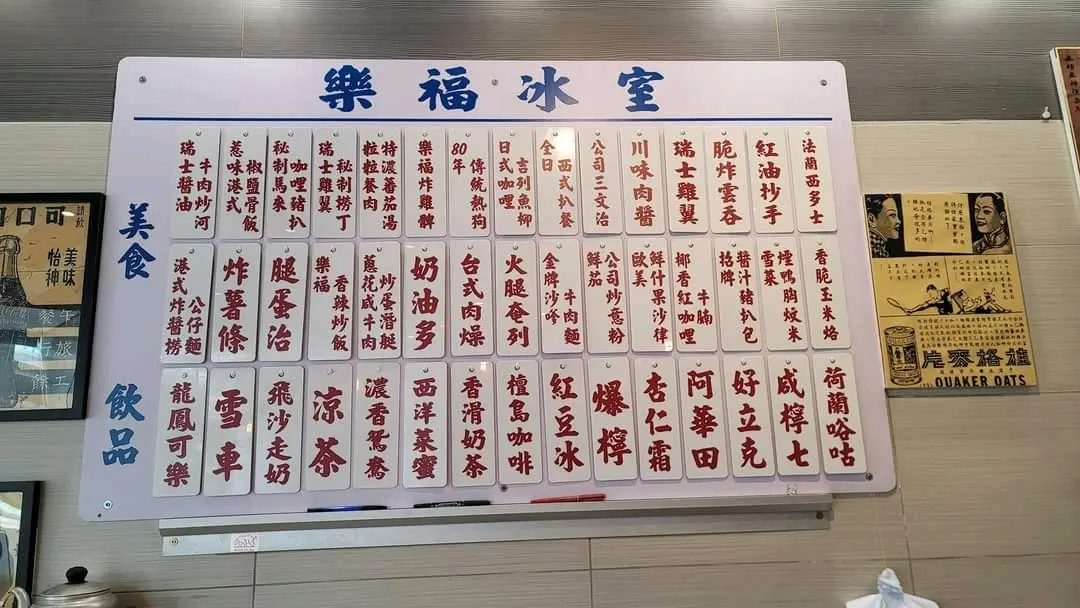 樂福冰室
美食
瑞士醬油
牛肉炒河
惹味港式
椒鹽骨飯
秘制馬來
咖哩豬扒
瑞士雞翼
秘制撈丁
粒粒餐肉
特濃蕃茄湯
樂福炸雞髀
80年
傳統熱狗
日式咖哩
吉列魚柳
全日
西式扒餐
公司三文治
川味肉醬
瑞士雞翼
脆炸雲吞
紅油抄手
法蘭西多士
港式炸醬撈
公仔麵
炸薯條
腿蛋治
樂福
香辣炒飯
蔥花咸牛肉
炒蛋潛艇
奶油多
台式肉燥
火腿奄列
金牌沙嗲
牛肉麵
鮮茄
公司炒意粉
歐美
鮮什果沙律
椰香紅咖哩
牛腩
招牌
醬汁豬扒包
雪菜
煙鴨胸炆米
香脆玉米烙
飲品
龍鳳可樂
雪車
飛沙走奶
涼茶
濃香鴛鴦
西洋菜蜜
香滑奶茶
檀島咖啡
紅豆冰
爆檸
杏仁霜
阿華田
好立克
咸檸七
荷蘭咯咕
請飲
可口
美味
怡神
片麥格雄
QUAKER OATS